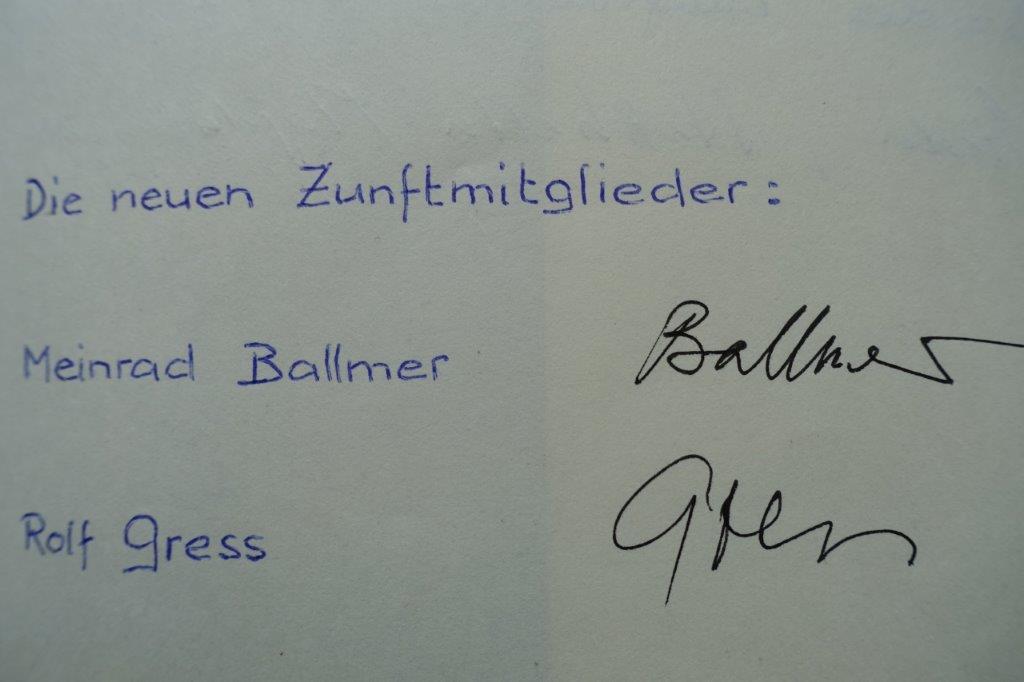 Die neuen Zunftmitglieder:
Meinrad Ballmer Ballmer
Rolf Gress Gress